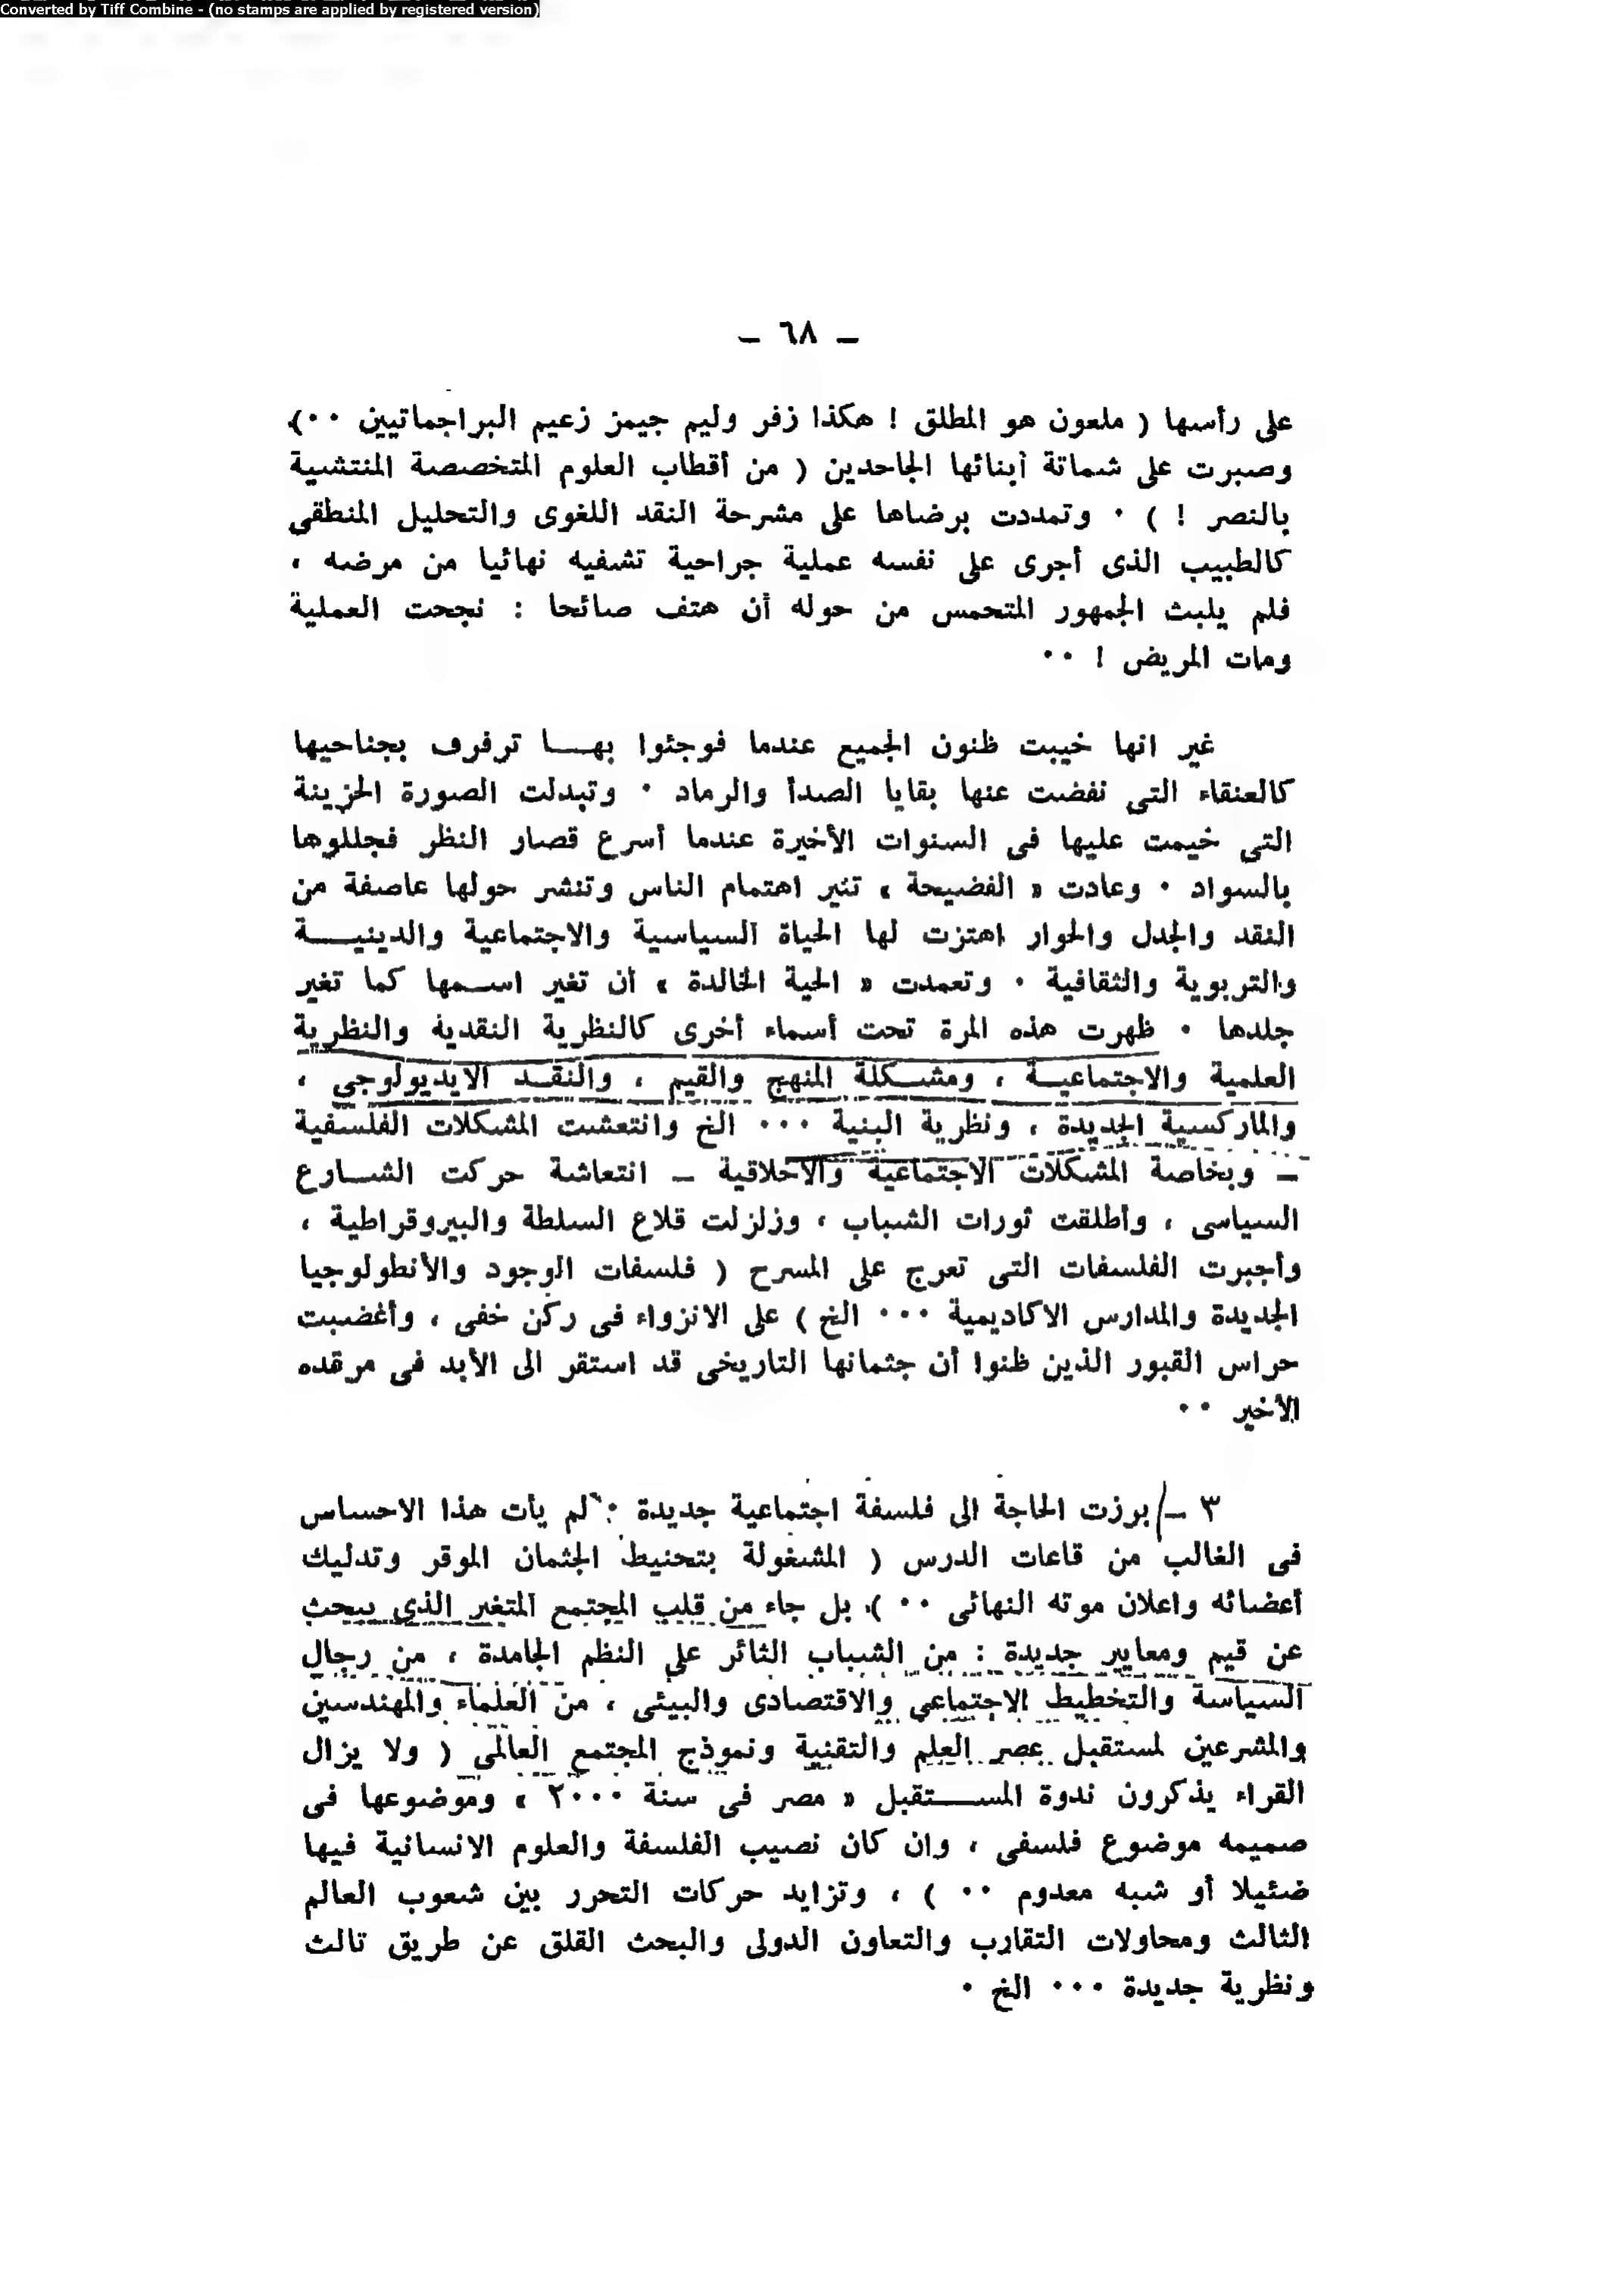 Converted by Tiff Combine - (no stamps are applied by registered version)
– ٦٨ –
على رأسها ( ملعون هو المطلق ! هكذا زفر وليم جيمز زعيم البراجماتيين ٠٠)
وصبرت على شماتة أبنائها الجاحدين ( من أقطاب العلوم المتخصصة المنتشية
بالنصر ! ) ٠ وتمددت برضاها على مشرحة النقد اللغوى والتحليل المنطقى
كالطبيب الذى أجرى على نفسه عملية جراحية تشفيه نهائيا من مرضه ،
فلم يلبث الجمهور المتحمس من حوله أن هتف صائحا : نجحت العملية
ومات المريض ! ٠٠
غير انها خيبت ظنون الجميع عندما فوجئوا بهـــا ترفرف بجناحيها
كالعنقاء التى نفضت عنها بقايا الصدأ والرماد ٠ وتبدلت الصورة الحزينة
التى خيمت عليها فى السنوات الأخيرة عندما أسرع قصار النظر فجللوها
بالسواد ٠ وعادت « الفضيحة » تثير اهتمام الناس وتنشر حولها عاصفة من
النقد والجدل والحوار اهتزت لها الحياة السياسية والاجتماعية والدينيـــة
والتربوية والثقافية ٠ وتعمدت « الحية الخالدة » أن تغير اســمها كما تغير
جلدها ٠ ظهرت هذه المرة تحت أسماء أخرى كالنظرية النقدية والنظرية
العلمية والاجتماعيــة ، ومشــكلة المنهج والقيم ، والنقــد الايديولوجى ،
والماركسية الجديدة ، ونظرية البنية ٠٠٠ الخ وانتعشت المشكلات الفلسفية
– وبخاصة المشكلات الاجتماعية والأخلاقية – انتعاشة حركت الشــارع
السياسى ، وأطلقت ثورات الشباب ، وزلزلت قلاع السلطة والبيروقراطية ،
وأجبرت الفلسفات التى تعرج على المسرح ( فلسفات الوجود والأنطولوجيا
الجديدة والمدارس الاكاديمية ٠٠٠ الخ ) على الانزواء فى ركن خفى ، وأغضبت
حراس القبور الذين ظنوا أن جثمانها التاريخى قد استقر الى الأبد فى مرقده
الأخير ٠٠
٣ – برزت الحاجة الى فلسفة اجتماعية جديدة : لم يأت هذا الاحساس
فى الغالب من قاعات الدرس ( المشغولة بتحنيط الجثمان الموقر وتدليك
أعضائه واعلان موته النهائى ٠٠ )، بل جاء من قلب المجتمع المتغير الذى يبحث
عن قيم ومعايير جديدة : من الشباب الثائر على النظم الجامدة ، من رجال
السياسة والتخطيط الاجتماعى والاقتصادى والبيئى ، من العلماء والمهندسين
والمشرعين لمستقبل عصر العلم والتقنية ونموذج المجتمع العالمى ( ولا يزال
القراء يذكرون ندوة المســـتقبل « مصر فى سنة ٢٠٠٠ » وموضوعها فى
صميمه موضوع فلسفى ، وان كان نصيب الفلسفة والعلوم الانسانية فيها
ضئيلا أو شبه معدوم ٠٠ ) ، وتزايد حركات التحرر بين شعوب العالم
الثالث ومحاولات التقارب والتعاون الدولى والبحث القلق عن طريق ثالث
ونظرية جديدة ٠٠٠ الخ ٠